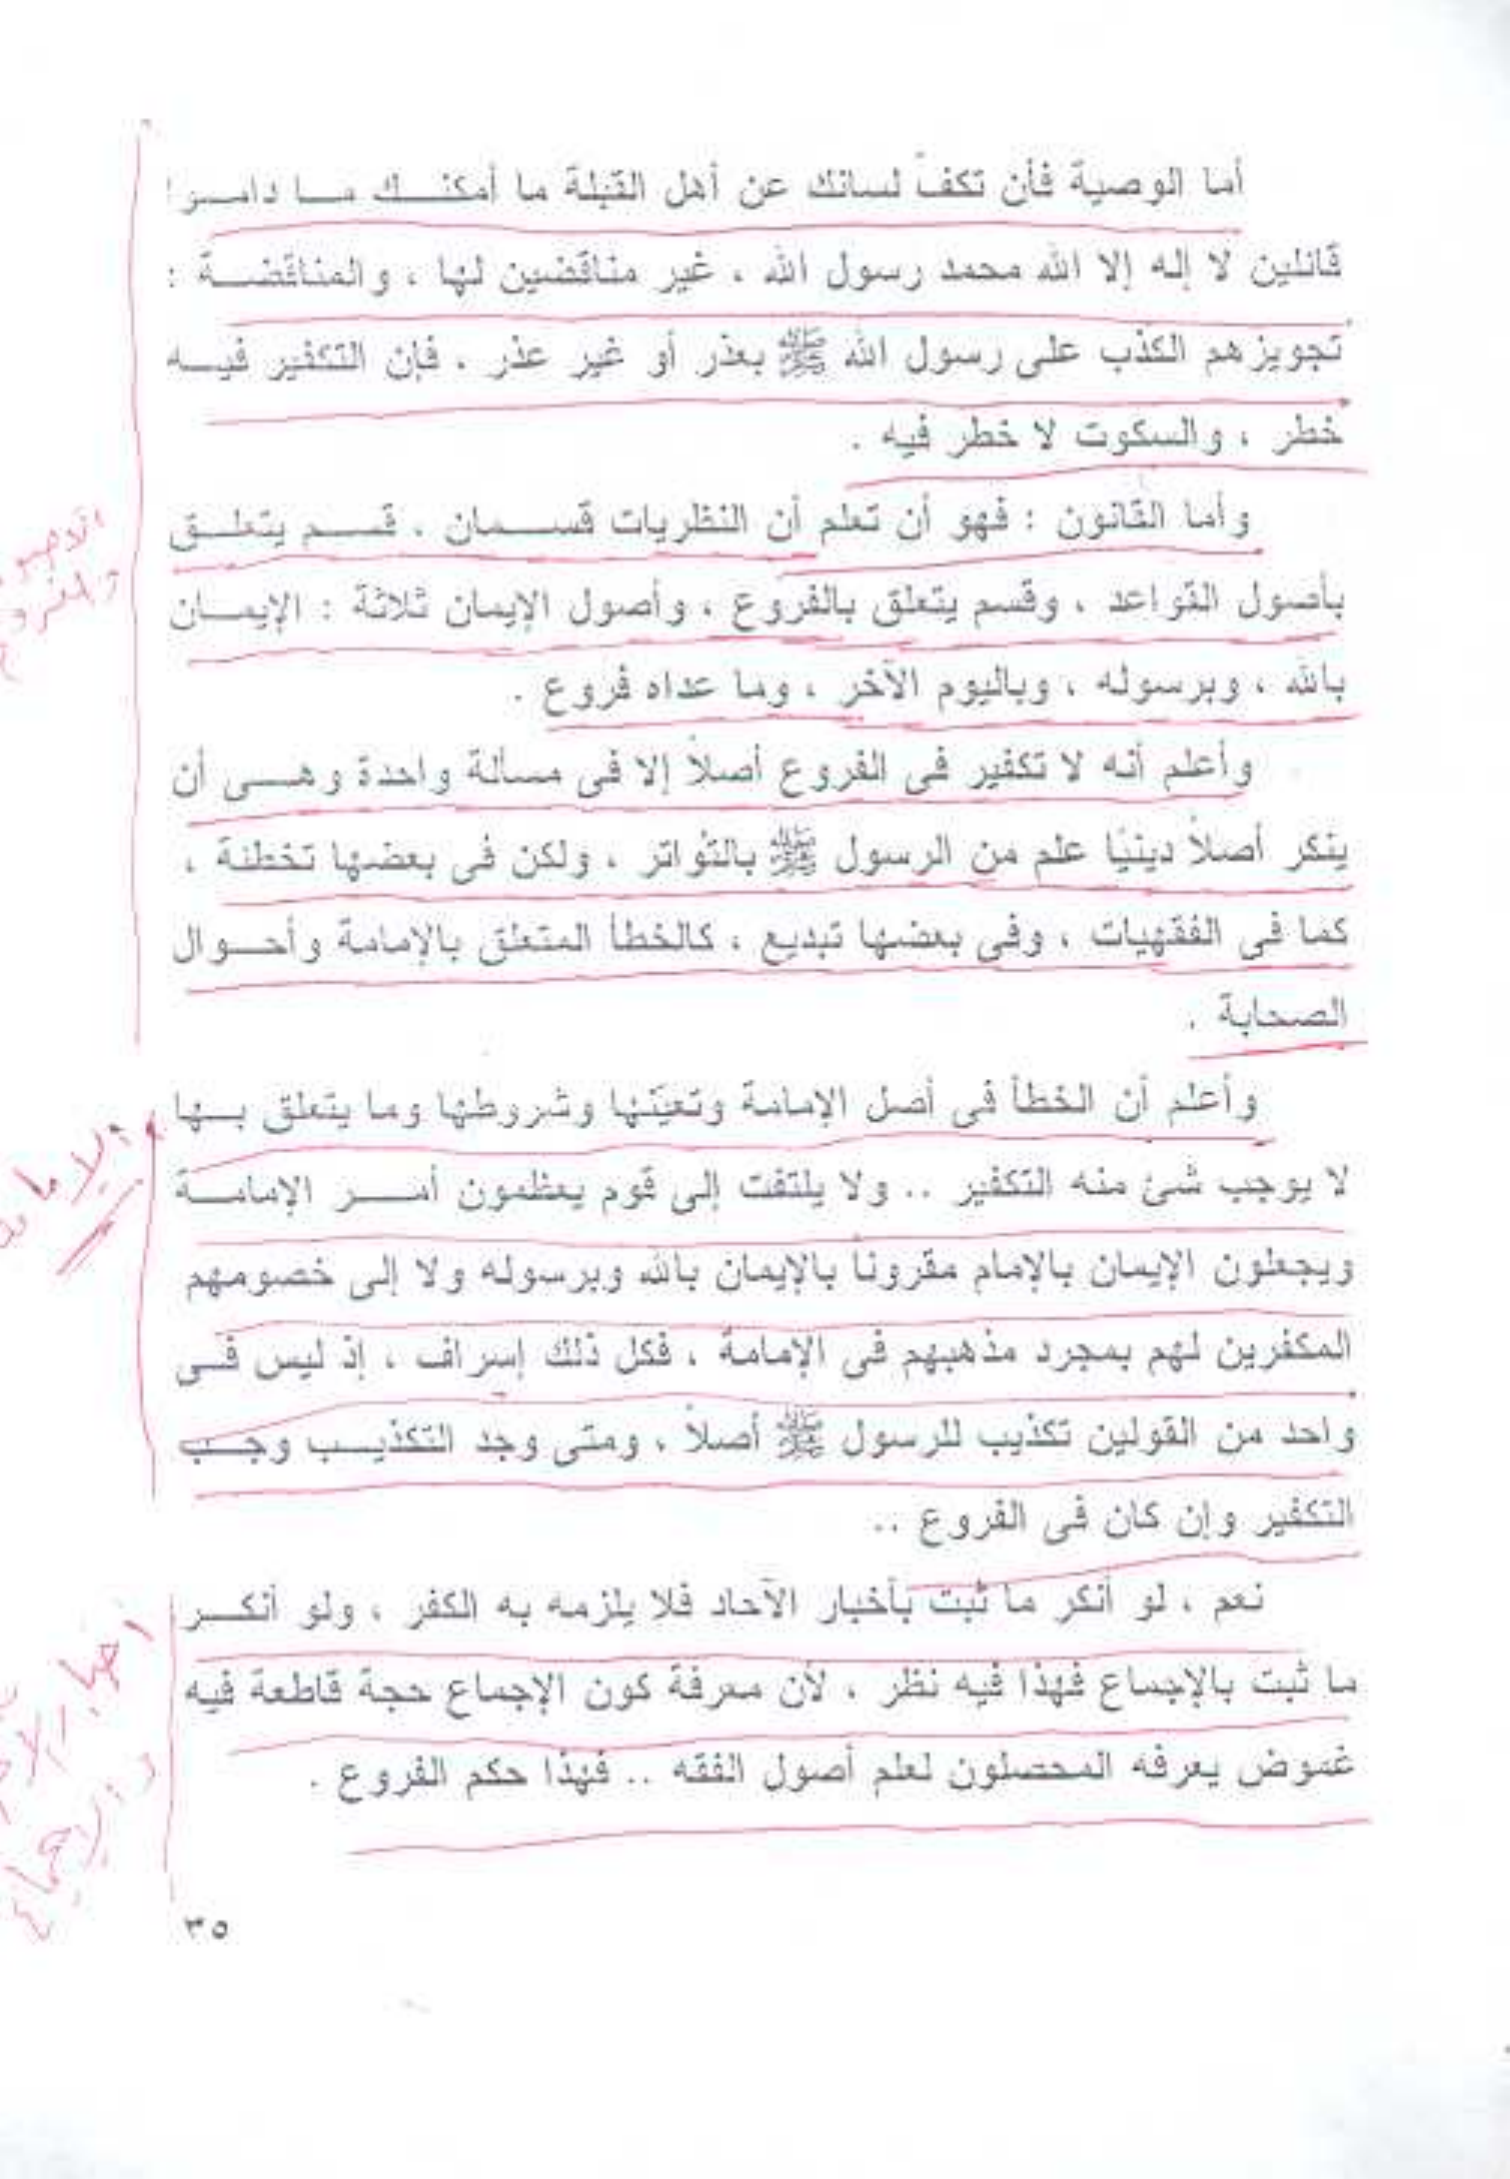 أما الوصية فأن تكفّ لسانك عن أهل القبلة ما أمكنــك مــا دامــوا
قائلين لا إله إلا الله محمد رسول الله ، غير مناقضين لها ، والمناقضــة :
تجويزهم الكذب على رسول الله ﷺ بعذر أو غير عذر ، فإن التكفير فيــه
خطر ، والسكوت لا خطر فيه .
وأما القانون : فهو أن تعلم أن النظريات قســمان ، قســم يتعلــق
بأصول القواعد ، وقسم يتعلق بالفروع ، وأصول الإيمان ثلاثة : الإيمــان
بالله ، وبرسوله ، وباليوم الآخر ، وما عداه فروع .
وأعلم أنه لا تكفير فى الفروع أصلاً إلا فى مسألة واحدة وهــى أن
ينكر أصلاً دينيًا علم من الرسول ﷺ بالتواتر ، ولكن فى بعضها تخطئة ،
كما فى الفقهيات ، وفى بعضها تبديع ، كالخطأ المتعلق بالإمامة وأحــوال
الصحابة .
وأعلم أن الخطأ فى أصل الإمامة وتعيّنها وشروطها وما يتعلق بــها
لا يوجب شئ منه التكفير .. ولا يلتفت إلى قوم يعظمون أمــر الإمامــة
ويجعلون الإيمان بالإمام مقرونًا بالإيمان بالله وبرسوله ولا إلى خصومهم
المكفرين لهم بمجرد مذهبهم فى الإمامة ، فكل ذلك إسراف ، إذ ليس فــى
واحد من القولين تكذيب للرسول ﷺ أصلاً ، ومتى وجد التكذيــب وجــب
التكفير وإن كان فى الفروع ..
نعم ، لو أنكر ما ثبت بأخبار الآحاد فلا يلزمه به الكفر ، ولو أنكــر
ما ثبت بالإجماع فهذا فيه نظر ، لأن معرفة كون الإجماع حجة قاطعة فيه
غموض يعرفه المحصلون لعلم أصول الفقه .. فهذا حكم الفروع .
٣٥
والفروع
والإجماع